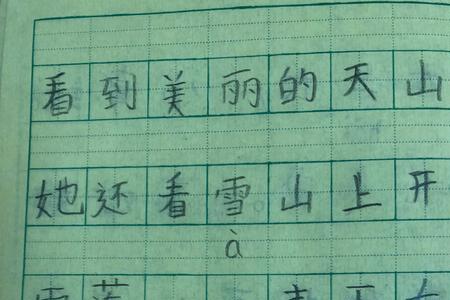 看到美丽的天山
她还看雪山上开
à